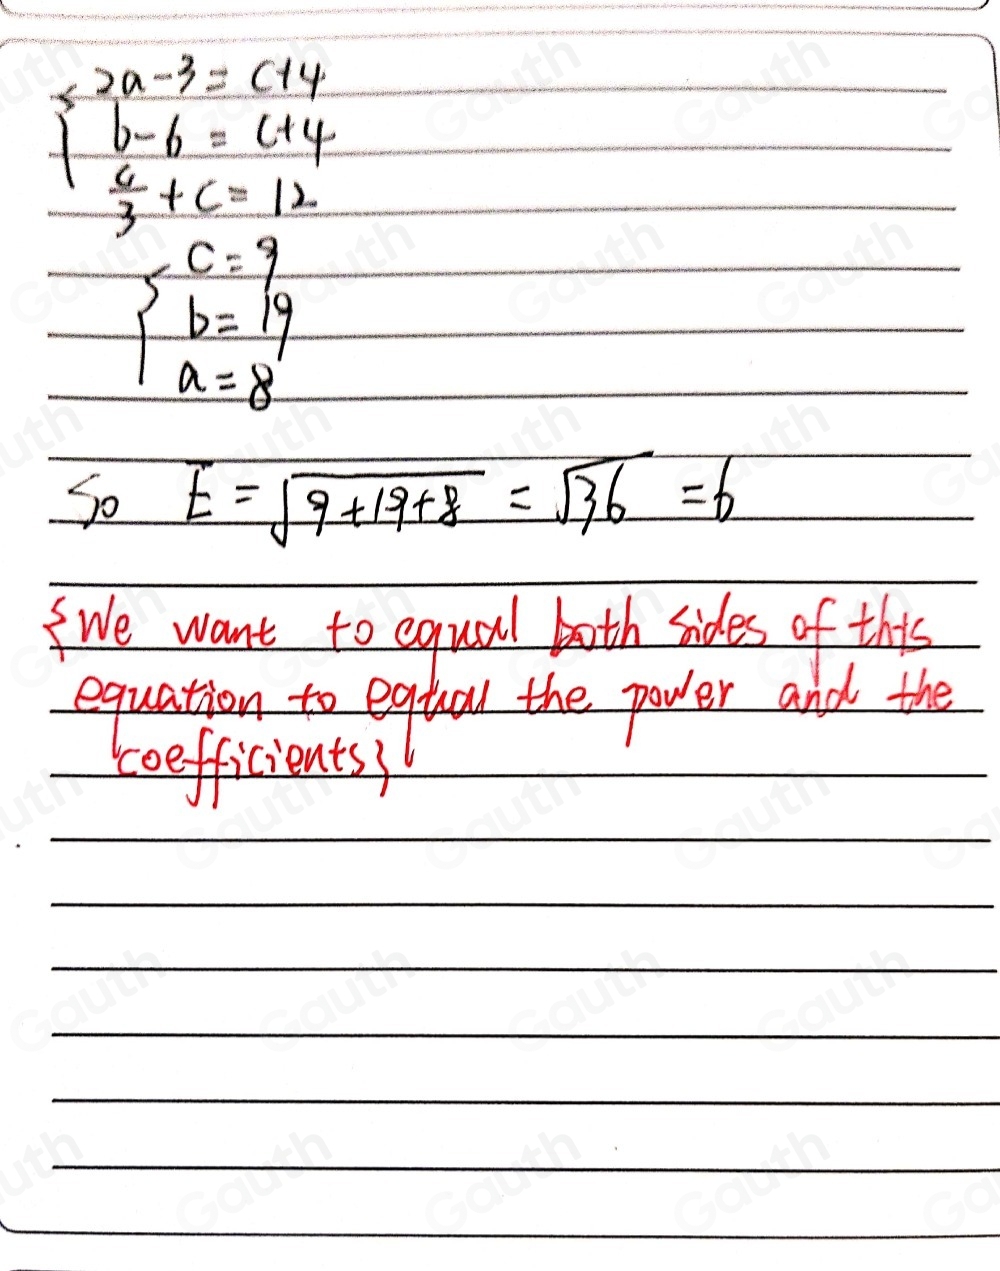 2a-3=c+4
b-6=c+4
c/3+c=12
c=9
b=19
a=8
So E=√(9+19+8) =√36 =6
{We want to equal both sides of this
equation to equal the power and the
coefficients}
Gauth